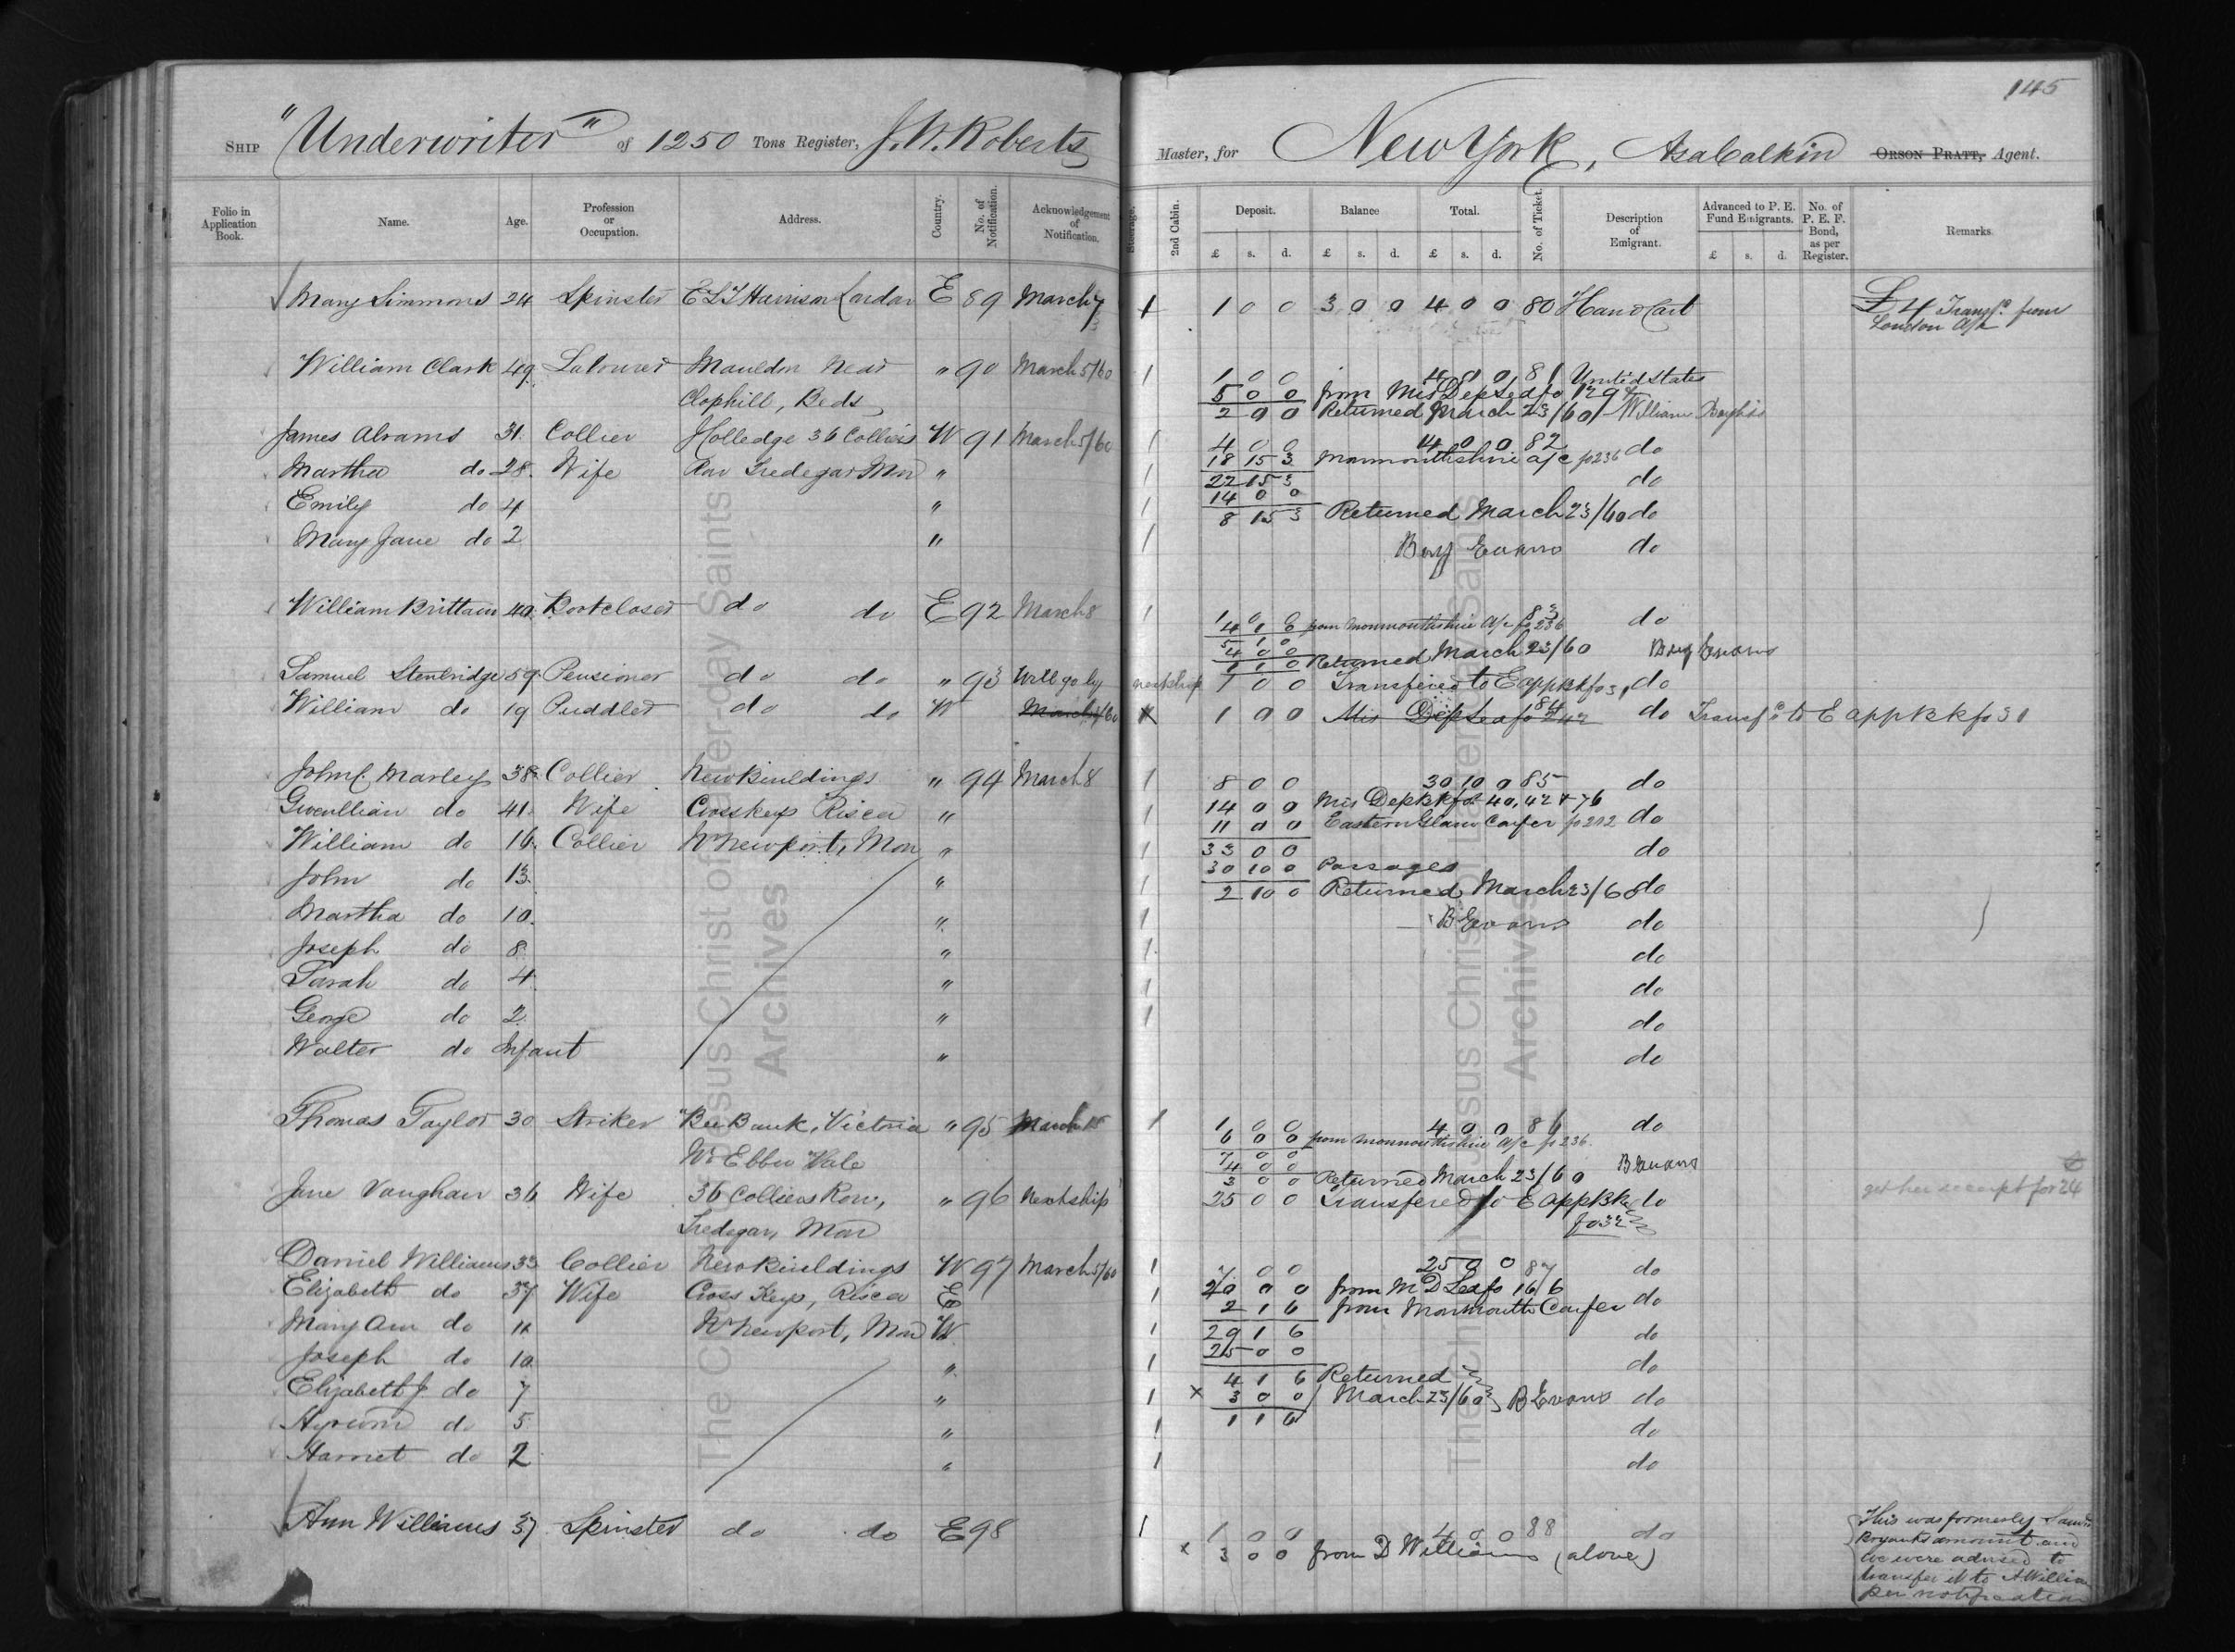 145
SHIP "Underwriter" of 1250 Tons Register, J. W. Roberts Master, for New York, Asa Calkin ORSON PRATT, Agent.
Folio in Application Book. Name. Age. Profession or Occupation. Address. Country. No. of Notification. Acknowledgement of Notification. Steerage. 2nd Cabin. Deposit. Balance Total. No. of Ticket. Description of Emigrant. Advanced to P. E. Fund Emigrants. No. of P. E. F. Bond, as per Register. Remarks
£ s. d. £ s. d. £ s. d. £ s. d.
Mary Simmons 24 Spinster E L T Harrison London E 89 March 7 1 0 0 3 0 0 4 0 0 80 Hand Cart £4 Transf.d from
London a/c
William Clark 49 Labourer Mauldon near " 90 March 5/60 1 1 0 0 4 0 0 81 United States
Clophill, Beds 5 0 0 from Mis Dep Leafo
2 0 0 Returned March 23/60 William
James Abrams 31 Collier Holledge 36 Colliers W 91 March 5/60 1 4 0 0 14 0 0 82 do
18 15 3 Monmouthshire a/c p 236
Martha do 28 Wife Row Tredegar Mon " 1 22 15 3 do
14 0 0
Emily do 4 " 1 8 15 3 Returned March 23/60 do
Mary Jane do 2 " 1 Benj Evans do
William Brittain 40 Bootcloser do do E 92 March 8 1 1 0 0 83 do
4 1 0 from Monmouthshire a/c p 236
5 1 0
4 0 0
1 1 0 Returned March 23/60 Benj Evans
Samuel Stenbridge 59 Pensioner do do " 93 Will go by next ship 1 0 0 Transfered to E app Bk fo 31 do
William do 19 Puddler do do W March 5/60 1 0 0 Mis Dep Leafo 242 84 do Transf.d to E app Bk fo 31
John C. Marley 38 Collier New Buildings " 94 March 8 1 8 0 0 30 10 0 85 do
14 0 0 Mis Dep Bk fo 40, 42 & 76
Gwenllian do 41 Wife Crosskeys Risca " 1 11 0 0 Eastern Glam Confer p 212 do
William do 16 Collier Nr Newport, Mon " 1 33 0 0 do
30 10 0 Passages
John do 13 " 1 2 10 0 Returned March 23/60 do
Martha do 10 " 1 B Evans do
Joseph do 8 " 1 do
Sarah do 4 " 1 do
George do 2 " 1 do
Walter do Infant " do
Thomas Taylor 30 Striker Bee Bank, Victoria " 95 March 1 1 0 0 4 0 0 86 do
6 0 0 from Monmouthshire a/c p 236
Nr Ebbw Vale 7 0 0
4 0 0
3 0 0 Returned March 23/60 B Evans
Jane Vaughan 36 Wife 36 Colliers Row, " 96 Next ship 25 0 0 Transfered to E app Bk do get her receipt for 24
Tredegar, Mon fo 32
Daniel Williams 33 Collier New Buildings W 97 March 5/60 1 7 0 0 25 0 0 87 do
Elizabeth do 37 Wife Cross Keys, Risca E 1 20 0 0 from M D Leafo 166 do
2 1 6 from Monmouth Confer
Mary Ann do 11 Nr Newport, Mon W 1 29 1 6 do
Joseph do 10 " 1 25 0 0 do
4 1 6 Returned
Elizabeth J. do 7 " 1 x 3 0 0 March 23/60 B Evans do
Hyrum do 5 " 1 1 1 6 do
Harriet do 2 " 1 do
Ann Williams 37 Spinster do do E 98 1 1 0 0 4 0 0 88 do
x 3 0 0 from D Williams (above)
This was formerly
Bryants amount and
we were advised to
transfer it to A Willia
per notification
The Church of Jesus Christ of Latter-day Saints
Archives
The Church of Jesus Christ of Latter-day Saints
Archives